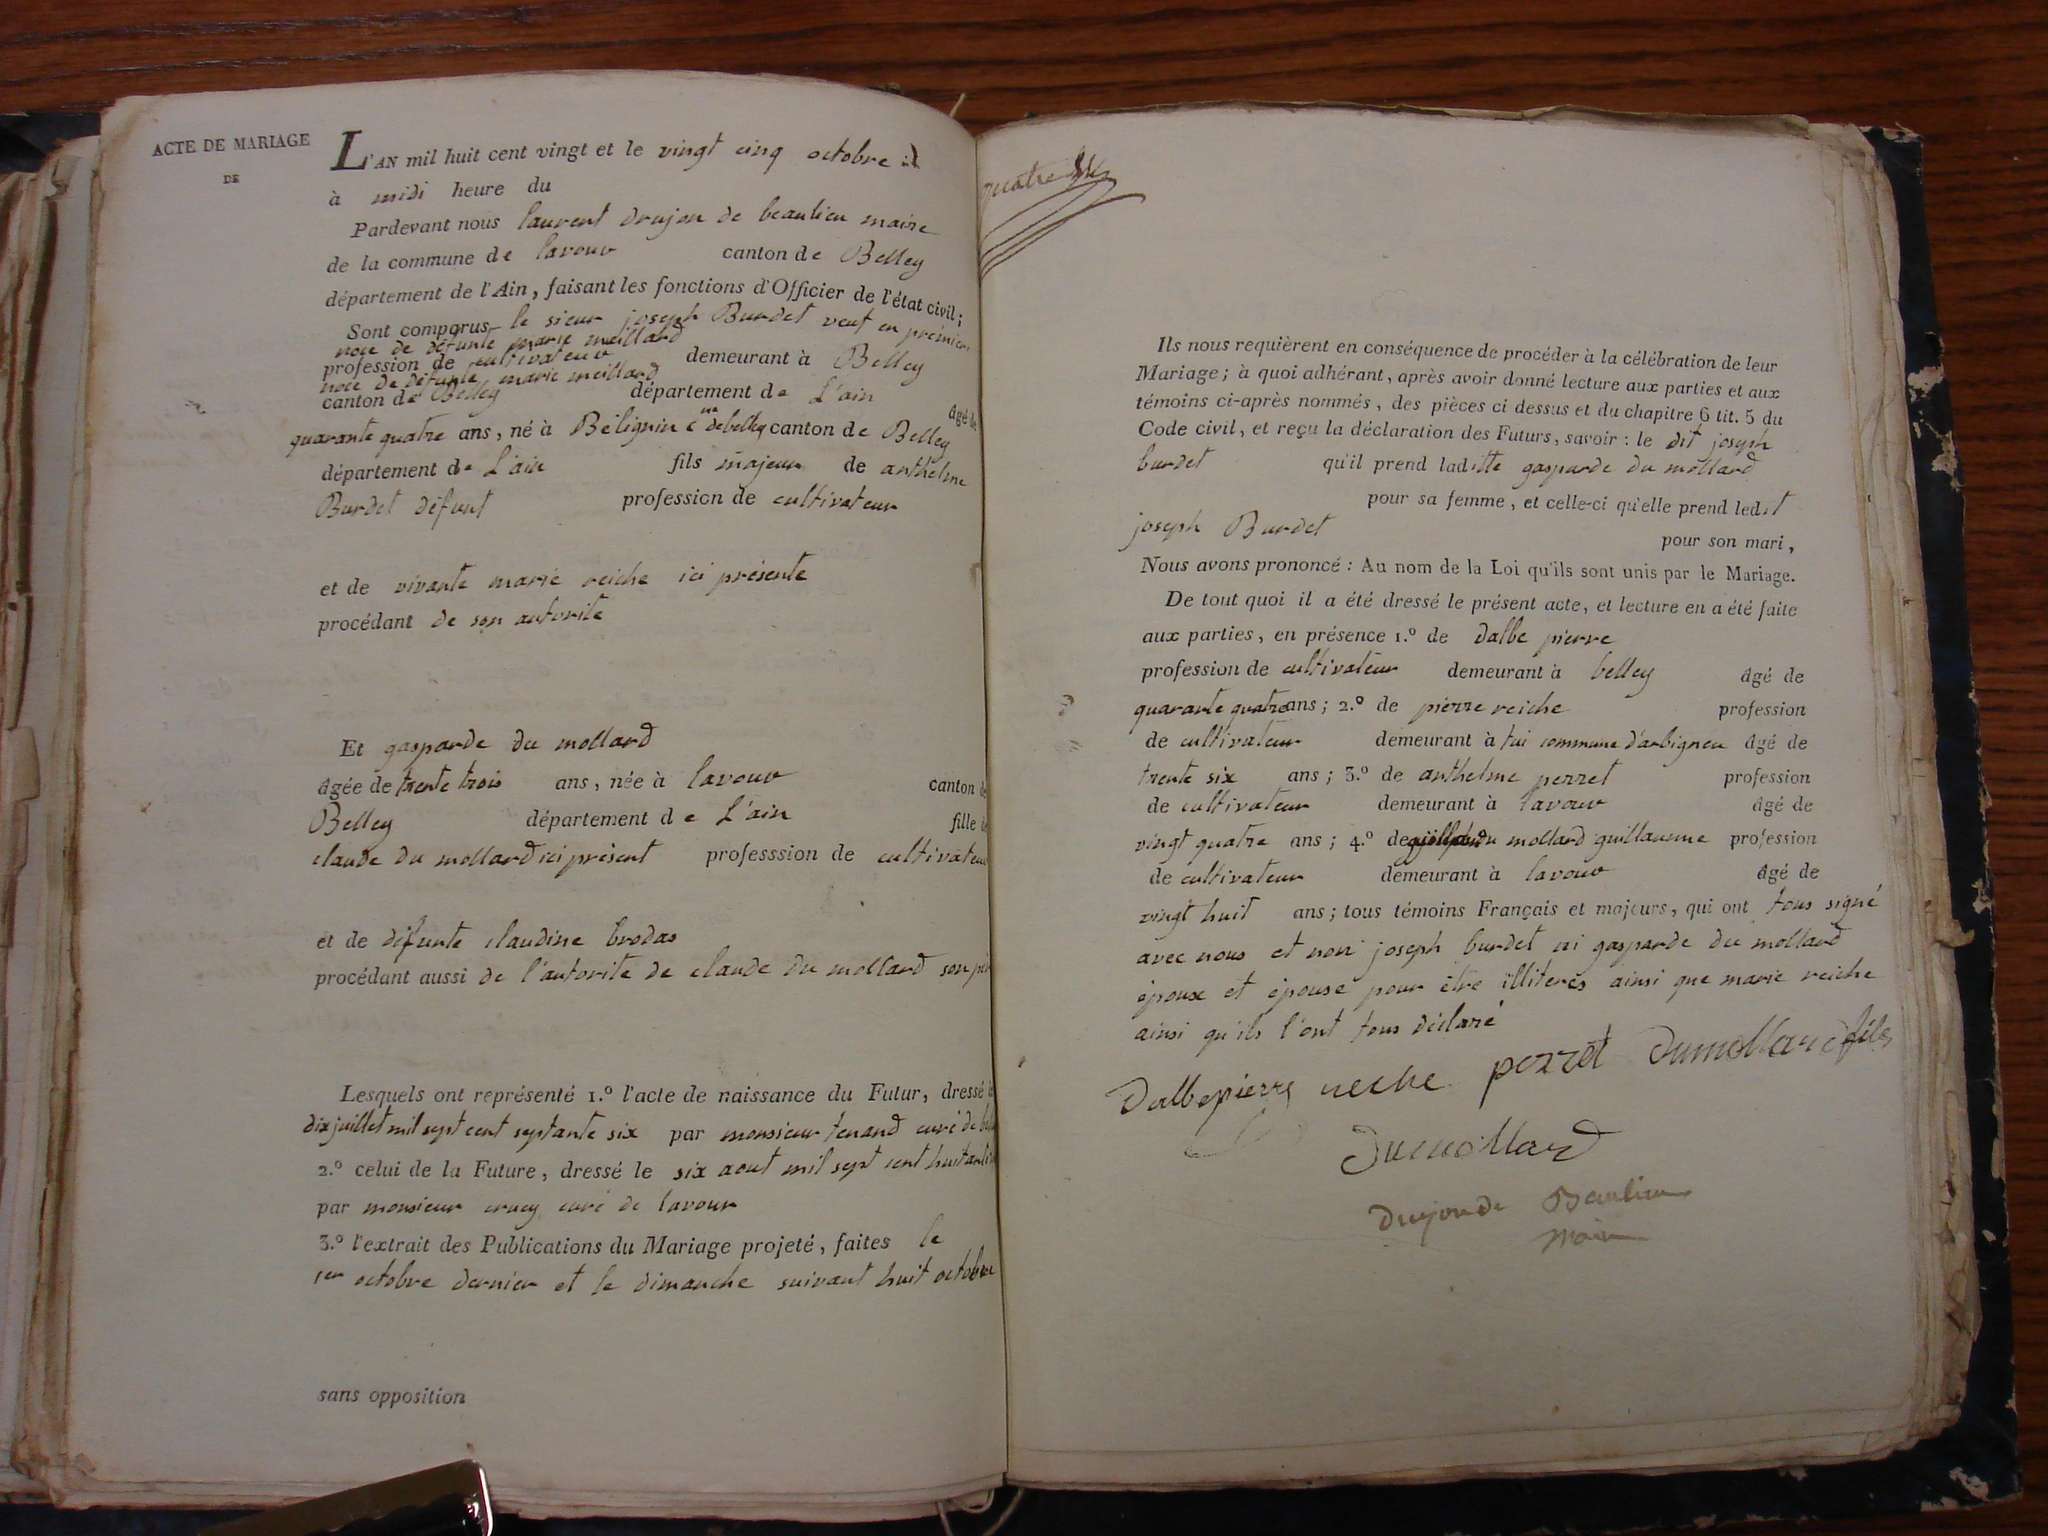 ACTE DE MARIAGE
DE
L'AN mil huit cent vingt et le vingt cinq octobre
à midi heure du
Pardevant nous laurent drujon de beaulieu maire
de la commune de lavour canton de Belley
département de l'Ain, faisant les fonctions d'Officier de l'état civil;
Sont comparus le sieur joseph Burdet veuf en prémier
noce de défunte marie meillard
profession de cultivateur demeurant à Belley
noce de défunte marie meillard
canton de Belley département de L'ain âgé de
quarante quatre ans, né à Bélignin cne de belley canton de Belley
département de L'ain fils majeur de anthelme
Burdet défunt profession de cultivateur
et de vivante marie reiche ici présente
procédant de son autorité
Et gasparde du mollard
âgée de trente trois ans, née à lavour canton de
Belley département de L'ain fille de
claude du mollard ici présent professsion de cultivateur
et de défunte claudine brodas
procédant aussi de l'autorité de claude du mollard son
Lesquels ont représenté 1.º l'acte de naissance du Futur, dressé
dix juillet mil sept cent septante six par monsieur tenand curé de
2.º celui de la Future, dressé le six aout mil sept cent
par monsieur crucy curé de lavour
3.º l'extrait des Publications du Mariage projeté, faites le
1er octobre dernier et le dimanche suivant huit octobre
sans opposition
quatre
Ils nous requièrent en conséquence de procéder à la célébration de leur
Mariage; à quoi adhérant, après avoir donné lecture aux parties et aux
témoins ci-après nommés, des pièces ci dessus et du chapitre 6 tit. 5 du
Code civil, et reçu la déclaration des Futurs, savoir: le dit joseph
burdet qu'il prend laditte gasparde du mollard
pour sa femme, et celle-ci qu'elle prend ledit
joseph Burdet pour son mari,
Nous avons prononcé: Au nom de la Loi qu'ils sont unis par le Mariage.
De tout quoi il a été dressé le présent acte, et lecture en a été faite
aux parties, en présence 1.º de dalbe pierre
profession de cultivateur demeurant à belley âgé de
quarante quatre ans; 2.º de pierre reiche profession
de cultivateur demeurant à tui commune d'arbigneu âgé de
trente six ans; 3.º de anthelme perret profession
de cultivateur demeurant à lavour âgé de
vingt quatre ans; 4.º de du mollard guillaume profession
de cultivateur demeurant à lavour âgé de
vingt huit ans; tous témoins Français et majeurs, qui ont tous signé
avec nous et non joseph burdet ni gasparde du mollard
époux et épouse pour être illiterés ainsi que marie reiche
ainsi qu'ils l'ont tous déclaré
Dalbe pierre reche perret Dumollard fils
Dumollard
Drujon de Beaulieu
Maire